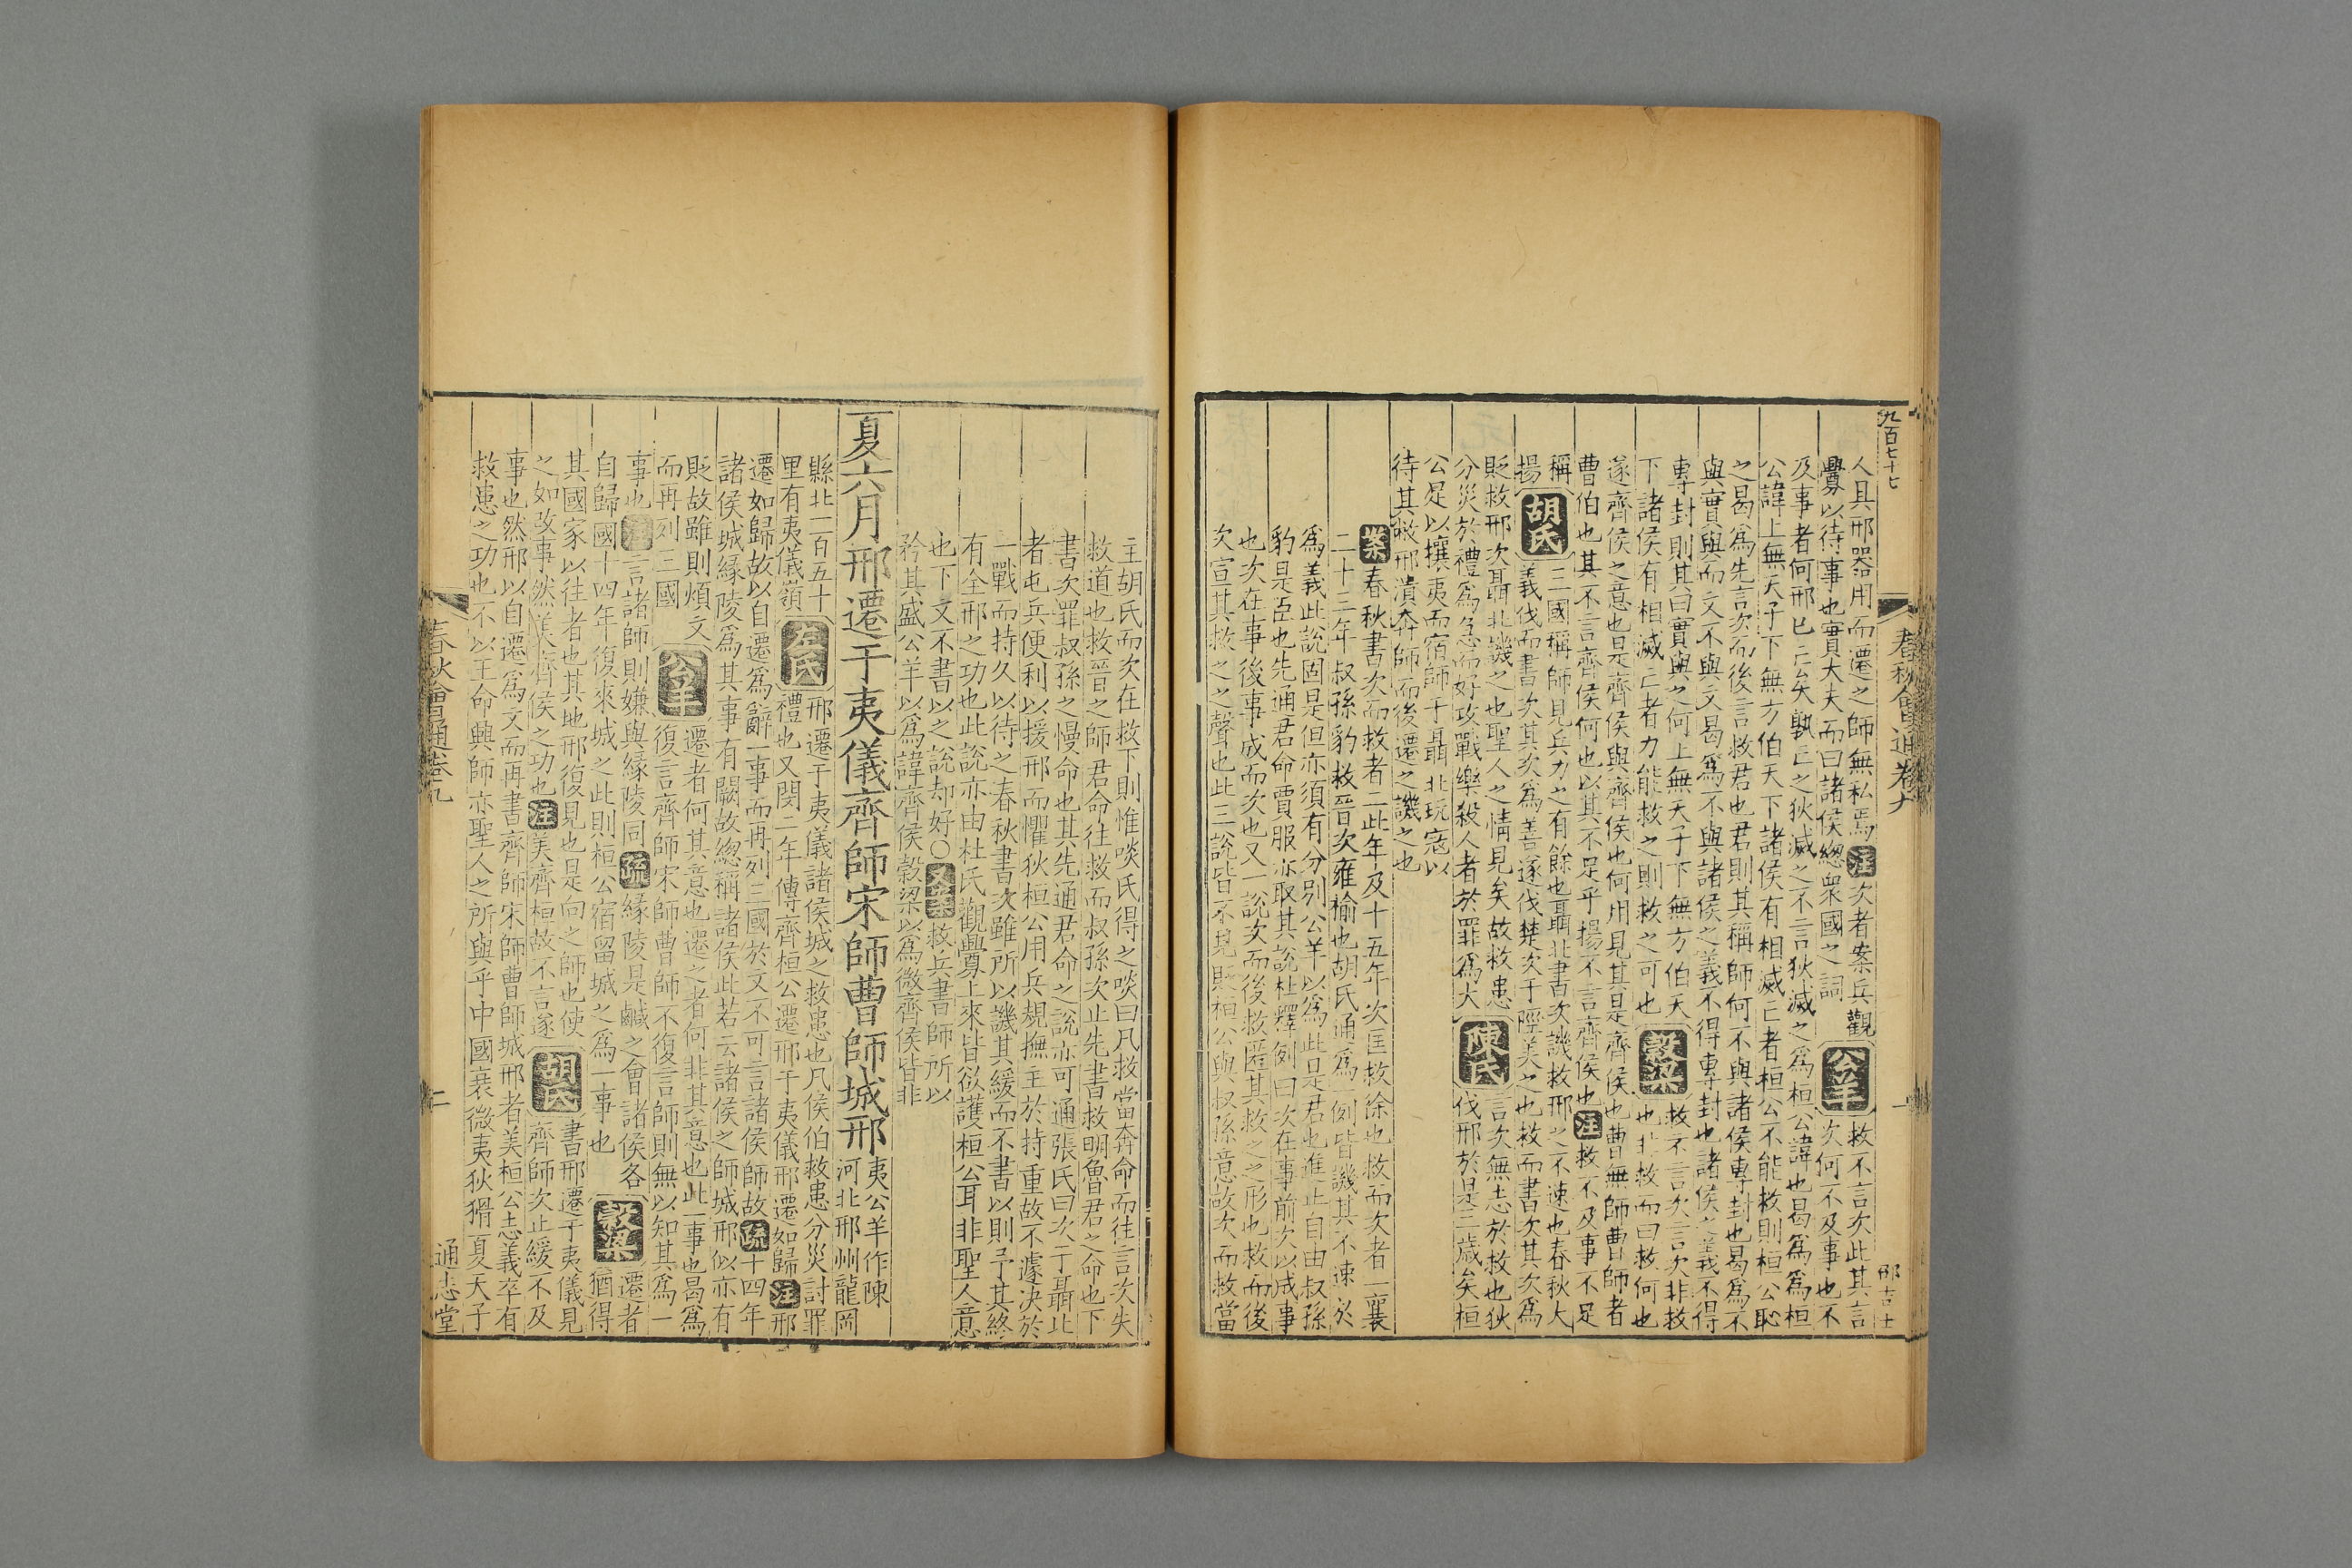 九百七十七
春秋會通卷九
一
人具邢器用而遷之師無私焉注次者案兵觀
釁以待事也實大夫而曰諸侯緫衆國之詞公羊救不言次此其言
及事者何邢已亡矣孰亡之狄滅之不言狄滅之爲桓公諱也曷爲爲桓
公諱上無天子下無方伯天下諸侯有相滅亡者桓公不能救則桓公恥
之曷爲先言次而後言救君也君則其稱師何不與諸侯專封也曷爲不
與實與而文不與文曷爲不與諸侯之義不得專封也諸侯之義不得
專封則其曰實與之何上無天子下無方伯天
下諸侯有相滅亡者力能救之則救之可也穀梁救不言次言次非救
遂齊侯之意也是齊侯與齊侯也何用見其是齊侯也曹無師曹師者
曹伯也其不言齊侯何也以其不足乎揚不言齊侯也注救不及事不足
稱
揚胡氏三國稱師見兵力之有餘也聶北書次譏救邢之不速也春秋大
義伐而書次其次爲善遂伐楚次于陘美之也救而書次其次爲
貶救邢次聶北譏之也聖人之情見矣故救患
分災於禮爲急而好攻戰樂殺人者於罪爲大陳氏言次無志於救也狄
伐邢於是三歲矣桓
公足以攘夷而宿師于聶北玩寇以
待其救邢潰奔師而後遷之譏之也
案春秋書次而救者二此年及十五年次匡救徐也救而次者一襄
二十三年叔孫豹救晉次雍榆也胡氏通爲一例皆譏其不速於
爲義此說固是但亦須有分別公羊以爲此是君也進止自由叔孫
豹是臣也先通君命賈服亦取其說杜釋例曰次在事前次以成事
也次在事後事成而次也又一說次而後救匿其救之之形也救而後
次宣其救之之聲也此三說皆不見貶桓公與叔孫意故次而救當
主胡氏而次在救下則惟啖氏得之啖曰凡救當奔命而往言次失
救道也救晉之師君命往救而叔孫次止先書救明魯君之命也下
書次罪叔孫之慢命也其先通君命之說亦可通張氏曰次于聶北
者屯兵便利以援邢而懼狄桓公用兵規撫主於持重故不遽決於
一戰而持久以待之春秋書次雖所以譏其緩而不書以則予其終
有全邢之功也此說亦由杜氏觀釁上來皆欲護桓公耳非聖人意
也下文不書以之說却好〇又案救兵書師所以
矜其盛公羊以爲諱齊侯穀梁以爲微齊侯皆非
夏六月邢遷于夷儀齊師宋師曹師城邢夷公羊作陳
河北邢州龍岡
縣北一百五十
里有夷儀嶺左氏邢遷于夷儀諸侯城之救患也凡侯伯救患分災討罪
禮也又閔二年傳齊桓公遷邢于夷儀邢遷如歸注邢
遷如歸故以自遷爲辭一事而再列三國於文不可言諸侯師故疏十四年
諸侯城緣陵爲其事有闕故緫稱諸侯此若云諸侯之師城邢似亦有
貶故雖則煩文
而再列三國公羊遷者何其意也遷之者何非其意也此一事也曷爲
復言齊師宋師曹師不復言師則無以知其爲一
事也注言諸師則嫌與緣陵同疏緣陵是鹹之會諸侯各
自歸國十四年復來城之此則桓公宿留城之爲一事也穀梁遷者
猶得
其國家以往者也其地邢復見也是向之師也使
之如改事然美齊侯之功也注美齊桓故不言遂胡氏書邢遷于夷儀見
齊師次止緩不及
事也然邢以自遷爲文而再書齊師宋師曹師城邢者美桓公志義卒有
救患之功也不以王命興師亦聖人之所與乎中國衰微夷狄猾夏天子
春秋會通卷九
二
通志堂